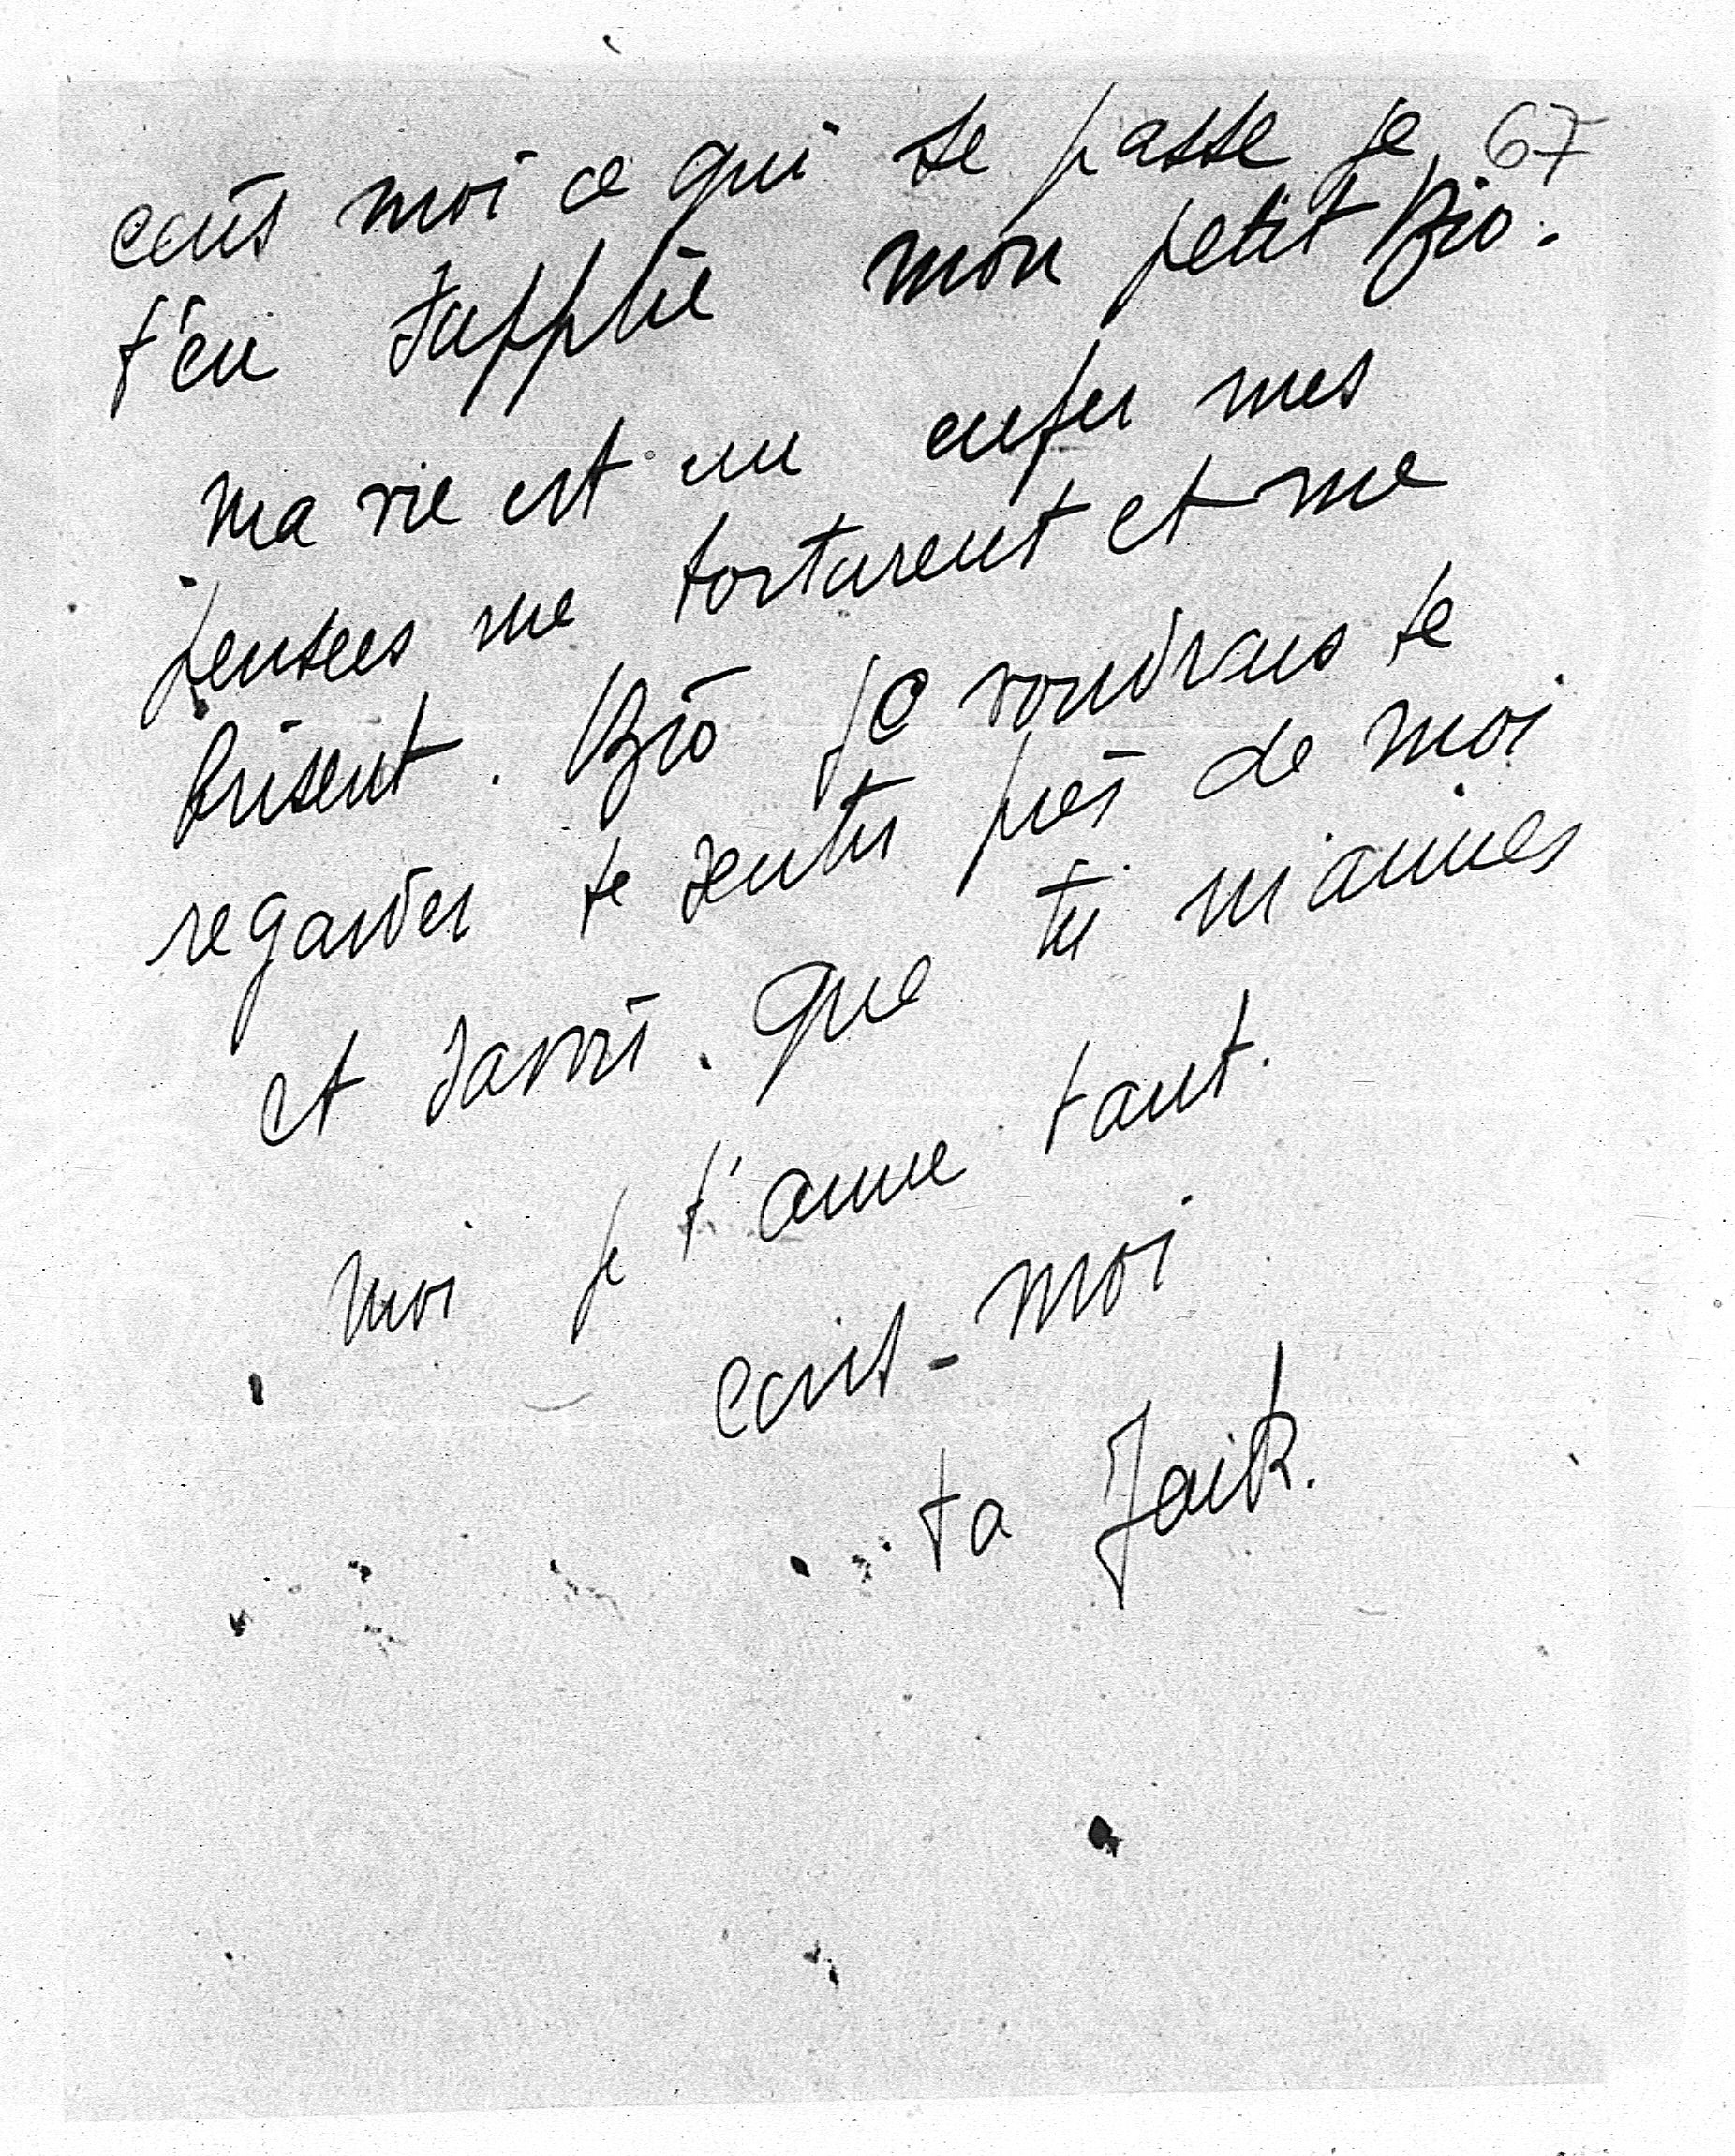 ecris moi ce qui se passe je 67
t'en supplie mon petit Bio.
ma vie est un enfer mes
pensees me torturent et me
brisent. Bio je voudrais te
regarder te sentir près de moi
et savoir. que tu m'aimes
moi je t'aime tant.
ecrit-moi
ta Jaik.